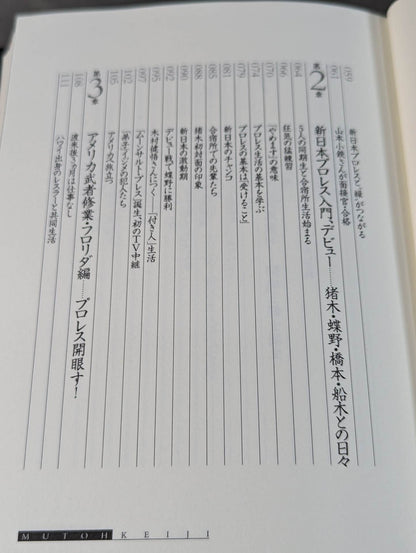 059 新日本プロレスと、"縁"がつながる
061 山本小鉄さんが面接官・合格
第2章 新日本プロレス入門、デビュー……猪木・蝶野・橋本・船木との日々
064 5人の同期生と合宿所生活始まる
066 狂気の猛練習
070 「やめます」の意味
074 プロレス生活の基本を学ぶ
079 プロレスの基本は、「受けること」
081 新日本のチャンコ
085 合宿所での先輩たち
088 猪木初対面の印象
090 新日本の激動期
092 デビュー戦で蝶野に勝利
095 木村健悟さんにつく、「付き人」生活
097 「ムーンサルト・プレス」誕生、初のTV中継
102 「菓子パイン」の犯人たち
105 アメリカへ旅立つ
第3章 アメリカ武者修業・フロリダ編……プロレス開眼す!
108 渡米後3カ月は仕事なし
111 ハワイ出身のレスラーと共同生活
MUTOH KEIJI